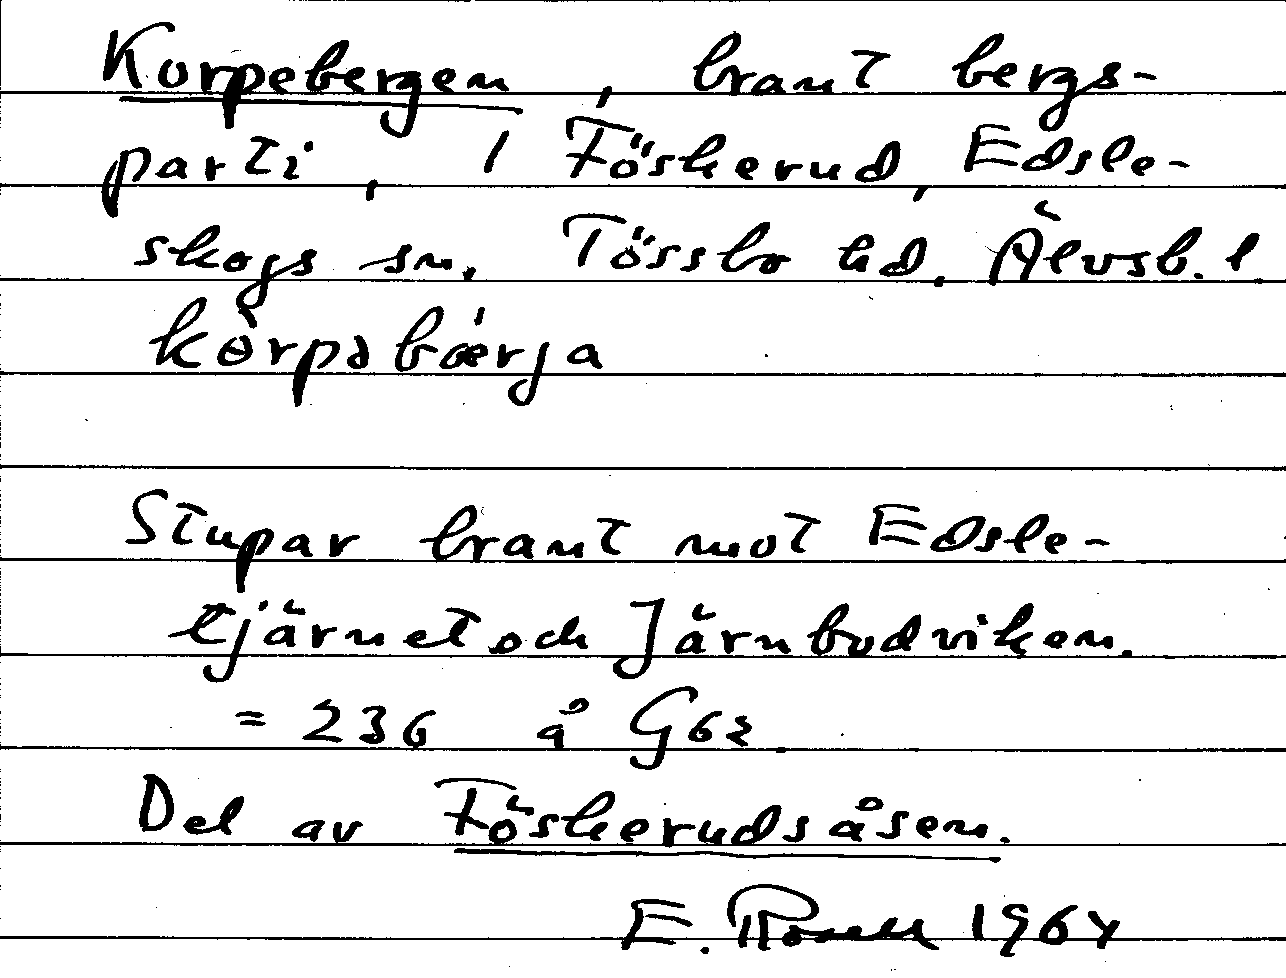 Korpebergen, brant bergs-
parti, i Föskerud, Edsle-
skogs sn. Tössbo hd. Älvsb. l.
kòrpəbǽrja
Stupar brant mot Edsle-
tjärnet och Järnbodviken.
= 236 å G62.
Del av Föskerudsåsen.
E. Rosell 1964